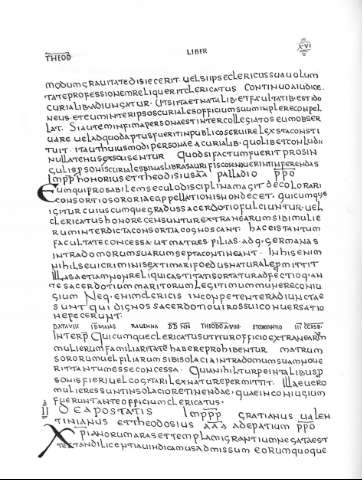 THEOD LIBER XVI
modum grauitatis iecerit uel si ipse clericus sua uolun
tate professionem reliquerit clericatus continuo iudice
curialib adiungatur Ut si ita et natalib et facultatib est ido
neus et cum interipsos curiales officium suum implere conpel
lat Si autem infima persona est inter collegiatos eum obser
uare uel ad quod aptus fuerit in publico seruire lex ista consti
tuit ita ut huiusmodi personae a curialib quolibet conludi
nullatenus excusentur Quod si factum fuerit pro sin
culis personis curialibus binas libras auri fisco nouerint inferendas
Impp honorius et theodosius aa palladio ppo
Eum qui probabilem seculo disciplinam agit decolorari
consortio sororiae appellationis non decet Quicumque
igitur cuiuscumque gradus sacerdotio fulciuntur uel
clericatus honore censuntur extranearum sibi mulie
rum interdicta consortia cognoscant hac eis tantum
facultate concessa ut matres filias adq germanas
intra domorum suarum septa contineant In his enim
nihil saeui criminis aestimari foedus naturale permittit
Illas etiam non relinqui castitatis ortatur adfectio q an
te sacerdotium maritorum legitimum meruere coniu
gium Neq enim clericis inconpetenter adiunctae
sunt qui dignos sacerdotio uiros sui conuersatio
ne fecerunt
Interp Quicumque clericatus utitur officio extranearum
mulierum familiaritate habere prohibentur matrum
sororum uel filiarum sibi solacia intra domum suam noue
rit tantum esse concessa Quia nihil turpe in talibus p
sonis fieri uel cogitari lex naturae permittit Illae uero
mulieres sunt in solacio retinendae quae in coniugium
fuerunt ante officium clericatus
II De apostatis Imppp gratianus ualen
tinianus et theodosius aaa ad epatium ppo
Xpianorum ad aras et templa migrantium negata est
testandi licentia uindicamus admissum eorum quoque